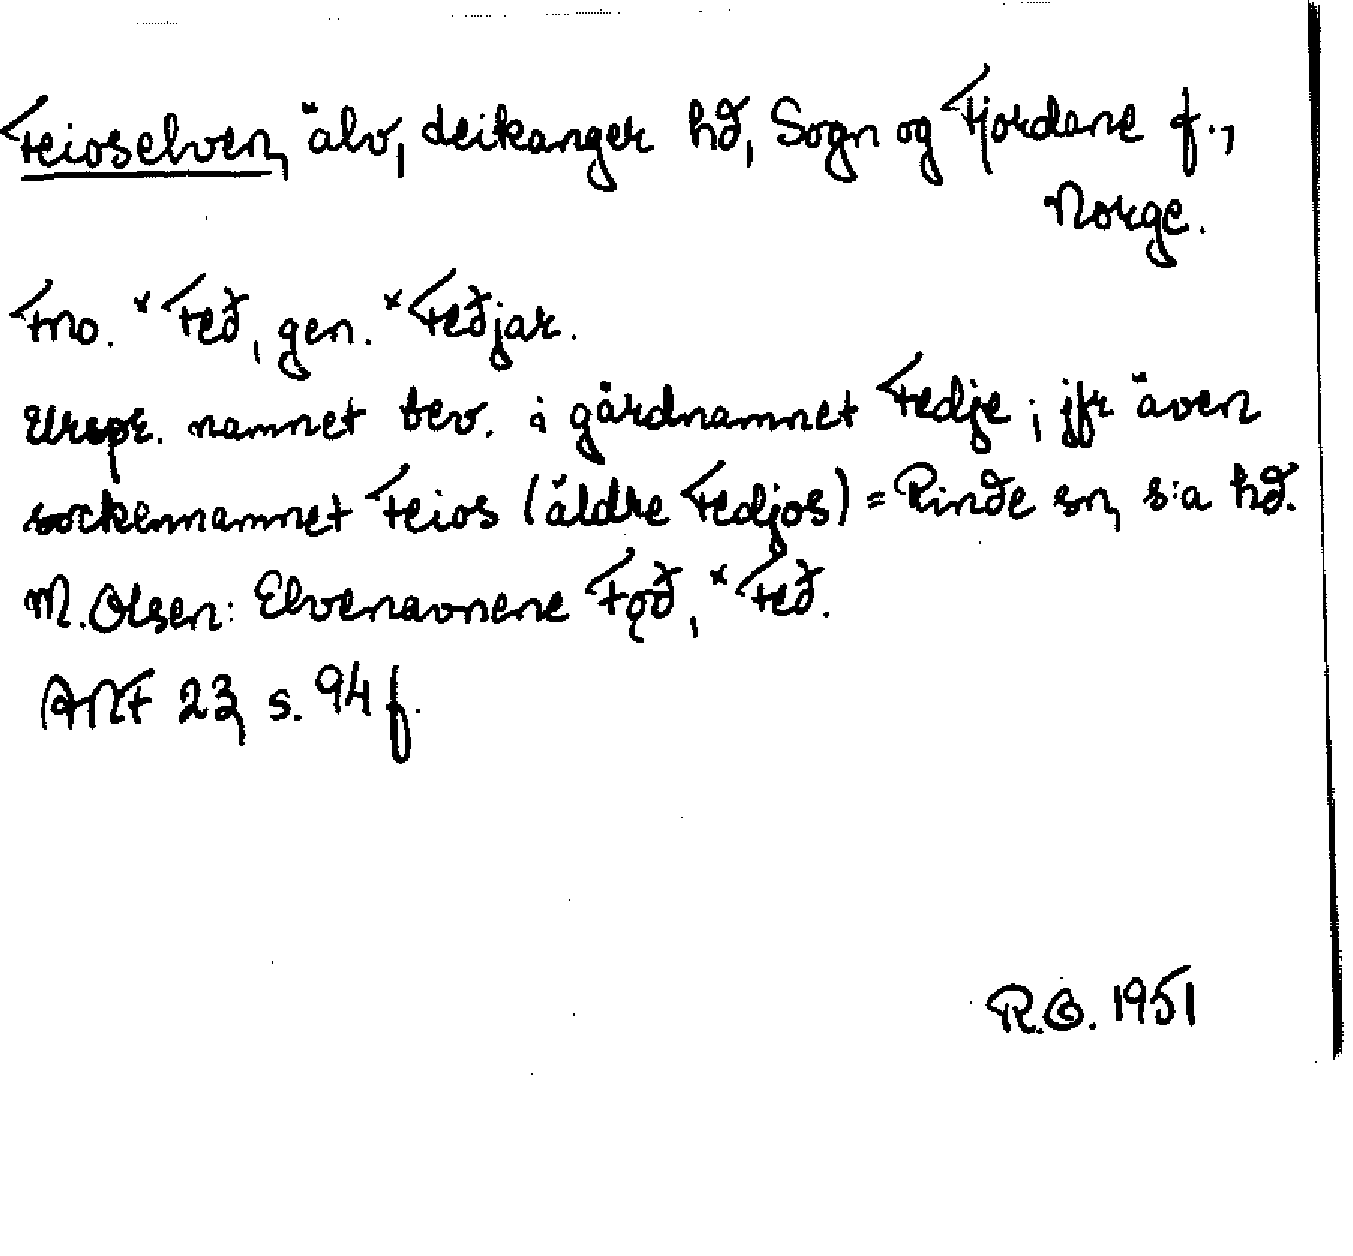 Feioselven, älv, Leikanger hd, Sogn og Fjordane f.,
Norge.
Fno. *Feð, gen. *Feðjar.
Urspr. namnet bev. i gårdnamnet Fedje; jfr även
sockennamnet Feios (äldre Fedjos) = Rinde sn, s:a hd.
M. Olsen: Elvenavnene Fǫð, *Feð.
ANF 23, s. 94 f.
R.O. 1951